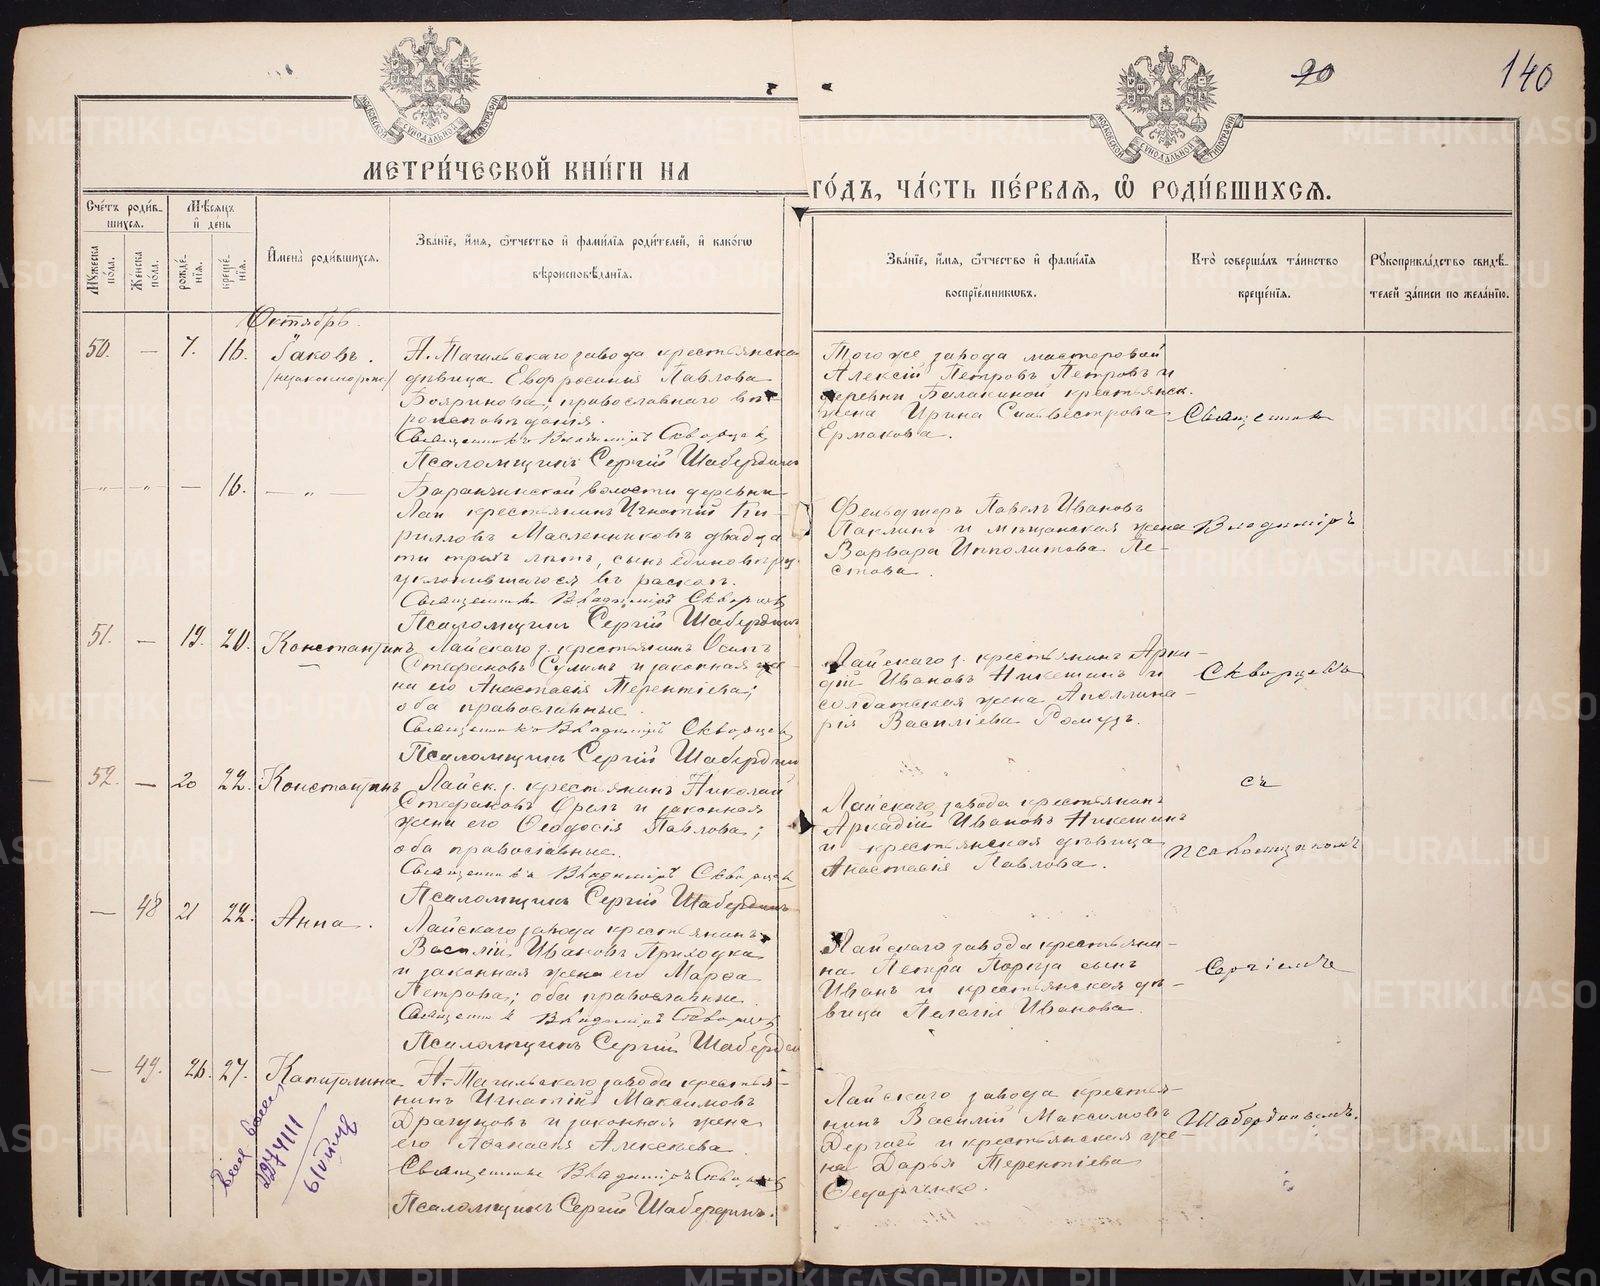 20
140
МОСКОВСКОЙ СУНОДАЛЬНОЙ ТИПОГРАФІИ
МОСКОВСКОЙ СУНОДАЛЬНОЙ ТИПОГРАФІИ
МЕТРИ́ЧЕСКОЙ КНИ́ГИ НА
ГО́ДЪ, ЧА́СТЬ ПЕ́РВАѦ, Ѡ РОДИ́ВШИХСѦ.
Сче́тъ роди́в-
шихсѧ.
Мужеска по́ла.
Же́нска по́ла.
Мѣсѧцъ
и҆ де́нь
рожде́-
нїѧ.
креще́-
нїѧ.
И҆мена̀ роди́вшихсѧ.
Зва́нїе, и҆́мѧ, ѻ҆́тчество и҆ фами́лїѧ роди́телей, и҆ какѡ́гѡ
вѣроисповѣ́данїѧ.
Зва́нїе, и҆́мѧ, ѻ҆́тчество и҆ фами́лїѧ
воспрїе́мникѡвъ.
Кто̀ соверша́лъ та́инство
креще́нїѧ.
Рꙋкоприкла́дство свидѣ́-
телей за́писи по жела́нїю.
Октябрь.
50. — 7. 16. Іаковъ.
/незаконорож/
Н. Тагильскаго завода крестьянска
дѣвица Евфросинія Павлова
Бояринова, православнаго вѣ-
роисповѣданія.
Священникъ Владиміръ Скворцов
Псаломщикъ Сергій Шабердин
Того же завода мастеровой
Алексій Петровъ Петровъ и
деревни Балакиной крестьянск.
жена Ирина Сильвестрова
Ермакова.
Священник
— „ — „ — 16. — „ —
Баранчинской волости деревни
Лаи крестьянинъ Игнатій Ки-
рилловъ Масленниковъ двадца
ти трехъ лѣтъ, сынъ единовѣрц.
уклонившагося въ раскол.
Священник Владиміръ Скворцов
Псаломщикъ Сергій Шабердин
Фельдшеръ Павелъ Ивановъ
Паклинъ и мѣщанская жена
Варвара Ипполитова Пе-
стова.
Владиміръ
51. — 19. 20. Константинъ
Лайскаго з. крестьянинъ Осипъ
Стефановъ Сулимъ и законная же-
на его Анастасія Терентіева;
оба православные.
Священникъ Владиміръ Скворцов
Псаломщикъ Сергій Шабердин
Лайскаго з. крестьянинъ Арка-
дій Ивановъ Никешинъ и
солдатская жена Аполлина-
рія Василіева Ромузъ.
Скворцовъ
52. — 20 22. Константинъ
Лайск. з. крестьянинъ Николай
Стефановъ Орелъ и законная
жена его Ѳеодосія Павлова;
оба православные.
Священникъ Владиміръ Скворцов
Псаломщикъ Сергій Шабердинъ
Лайскаго завода крестьянинъ
Аркадій Ивановъ Никешинъ
и крестьянская дѣвица
Анастасія Павлова.
съ
псаломщикомъ
— 48 21 22. Анна.
Лайскаго завода крестьянинъ
Василій Ивановъ Приходка
и законная жена его Марѳа
Петрова; оба православные.
Священник Владиміръ Скворцов
Псаломщикъ Сергій Шаберди
Лайскаго завода крестьяни-
на Петра сынъ
Иванъ и крестьянская дѣ-
вица Пелагія Иванова.
Сергіемъ
— 49. 26. 27. Капитолина
Н.-Тагильскаго завода крестья-
нинъ Игнатій Максимовъ
Драгуновъ и законная жена
его Аѳанасія Алексѣева.
Священникъ Владиміръ Скворцов
Псаломщикъ Сергій Шабердинъ.
Лайскаго завода крестья-
нинъ Василій Максимовъ
Дергай и крестьянская же-
на Дарья Терентіева
Ѳедорченко.
Шабердинымъ.